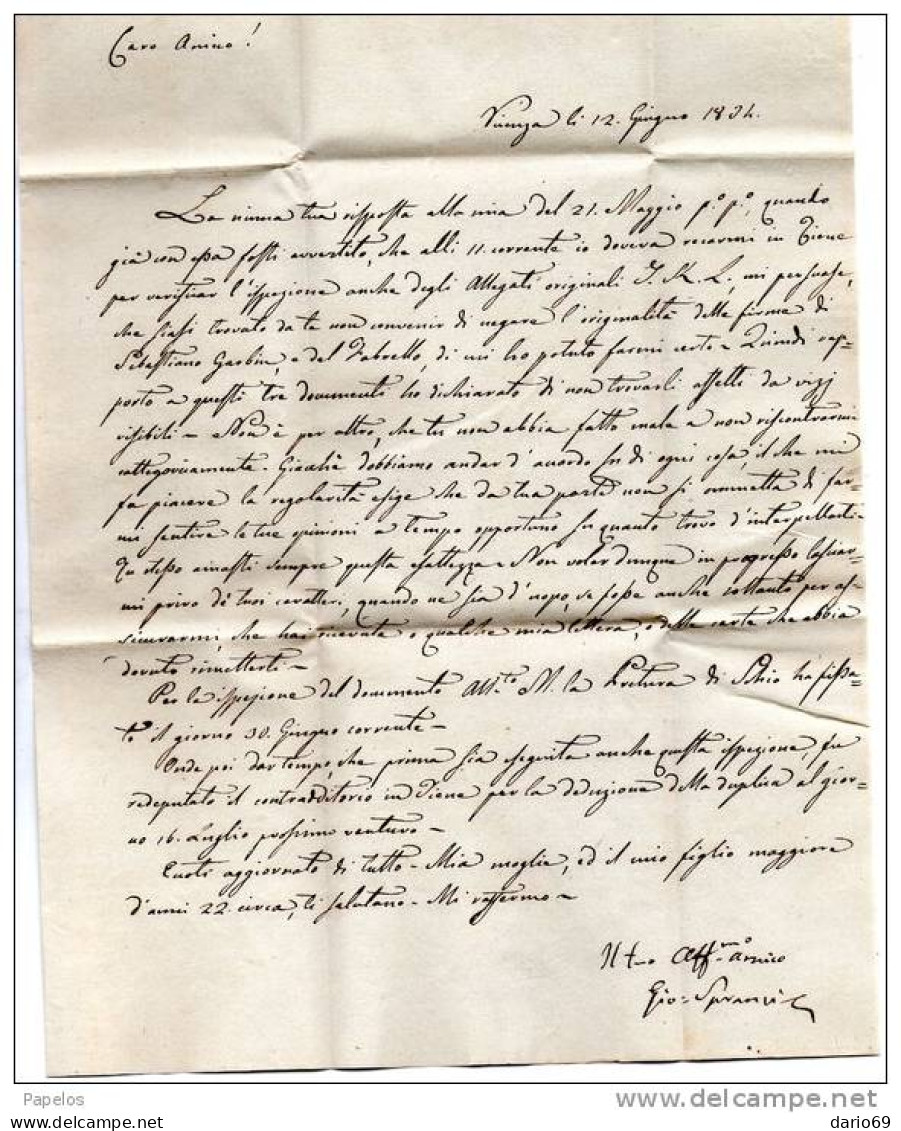 Caro Amico!
Vicenza li 12. Giugno 1834.
La niuna tua risposta alla mia del 21. Maggio p.º p.º, quando
già con essa fosti avvertito, che alli 11. corrente io doveva recarmi in Tiene
per verificar l'ispezione anche degli Allegati originali I. K. L., mi persuase,
che siasi trovato da te non convenir di negare l'originalità delle firme di
Sebastiano Gasbin, e del Fabrello, di cui ho potuto farmi certo - Quindi rap=
porto a questi tre documenti ho dichiarato di non trovarli affetti da vizj
visibili - Non è per altro, che tu non abbia fatto male a non riscontrarmi
cattegoricamente. Giacchè dobbiamo andar d'acordo su di ogni cosa, il che mi
fa piacere la regolarità esige che da tua parte non si ommetta di far=
mi sentire le tue opinioni a tempo opportuno su quanto trovo d'interpellarti -
Tu stesso amasti sempre questa esattezza - Non voler dunque in progresso lasciar=
mi privo de' tuoi caratteri, quando ne sia d'uopo, se fosse anche soltanto per as=
sicurarmi, che hai ricevuta o qualche mia lettera, o delle carte che abbia
dovuto rimetterti -
Per la ispezione del documento All.to M. la Pretura di Schio ha fissa=
to il giorno 30. Giugno corrente -
Onde poi dar tempo, che prima sia eseguita anche questa ispezione, fu
redeputato il contradditorio in Tiene per la deduzione della duplica al gior=
no 16. Luglio prossimo venturo -
Eccoti aggiornato di tutto - Mia moglie, ed il mio figlio maggiore
d'anni 22. circa, ti salutano - Mi raffermo -
Il tuo Aff.mo amico
Gio:
Papelos
delcampe.net
dario69